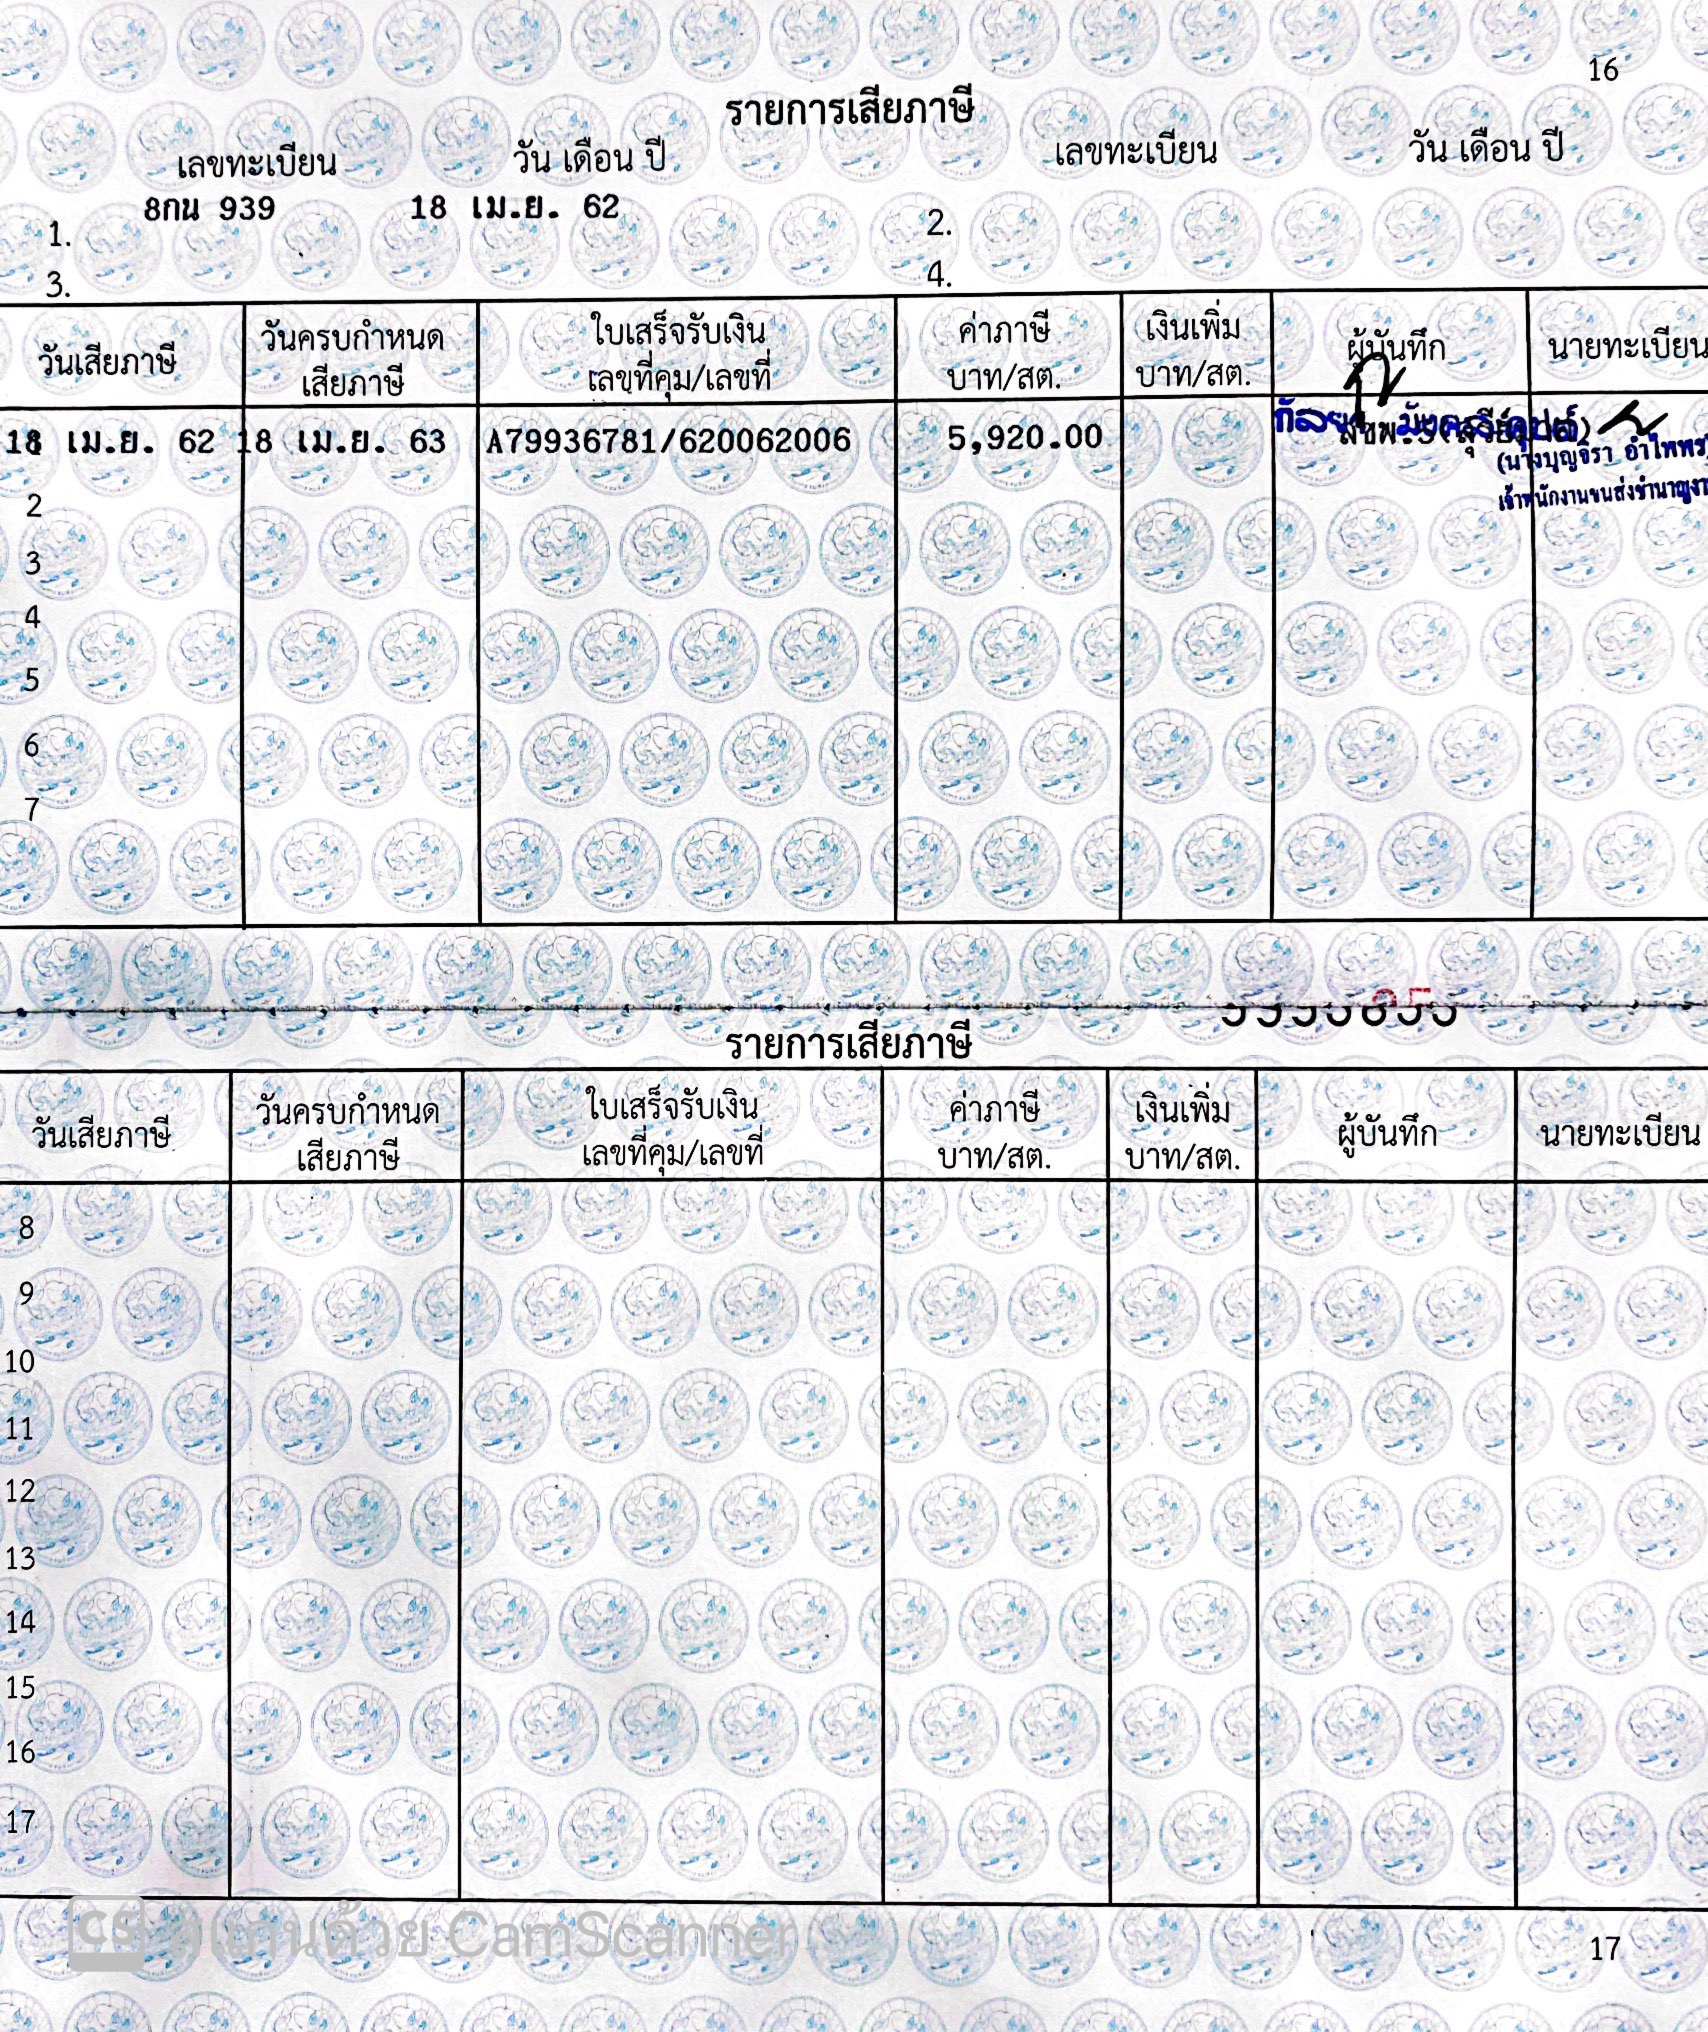 16
รายการเสียภาษี
เลขทะเบียน วัน เดือน ปี เลขทะเบียน วัน เดือน ปี
1. 8กน 939 18 เม.ย. 62 2.
3. 4.
วันเสียภาษี วันครบกำหนด เสียภาษี ใบเสร็จรับเงิน เลขที่คุม/เลขที่ ค่าภาษี บาท/สต. เงินเพิ่ม บาท/สต. ผู้บันทึก นายทะเบียน
18 เม.ย. 62 18 เม.ย. 63 A79936781/620062006 5,920.00
(นางบุญจิรา อำไพพร)
เจ้าพนักงานขนส่งชำนาญงา
2
3
4
5
6
7
รายการเสียภาษี
วันเสียภาษี วันครบกำหนด เสียภาษี ใบเสร็จรับเงิน เลขที่คุม/เลขที่ ค่าภาษี บาท/สต. เงินเพิ่ม บาท/สต. ผู้บันทึก นายทะเบียน
8
9
10
11
12
13
14
15
16
17
CS สแกนด้วย CamScanner
17